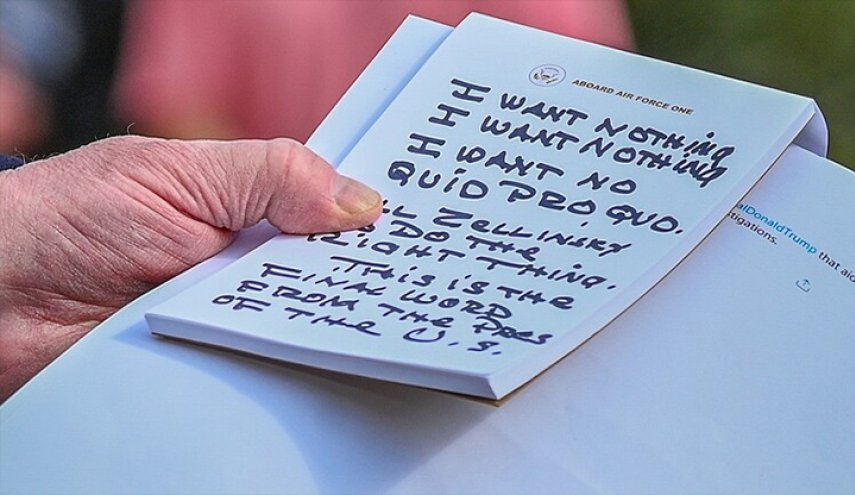 ABOARD AIR FORCE ONE
I WANT NOTHING
I WANT NOTHING
I WANT NO
QUID PRO QUO.
ZELLINSKY
DO THE
RIGHT THING.
THIS IS THE
FINAL WORD
FROM THE PRES
OF THE U.S.
alDonaldTrump that aid
tigations.